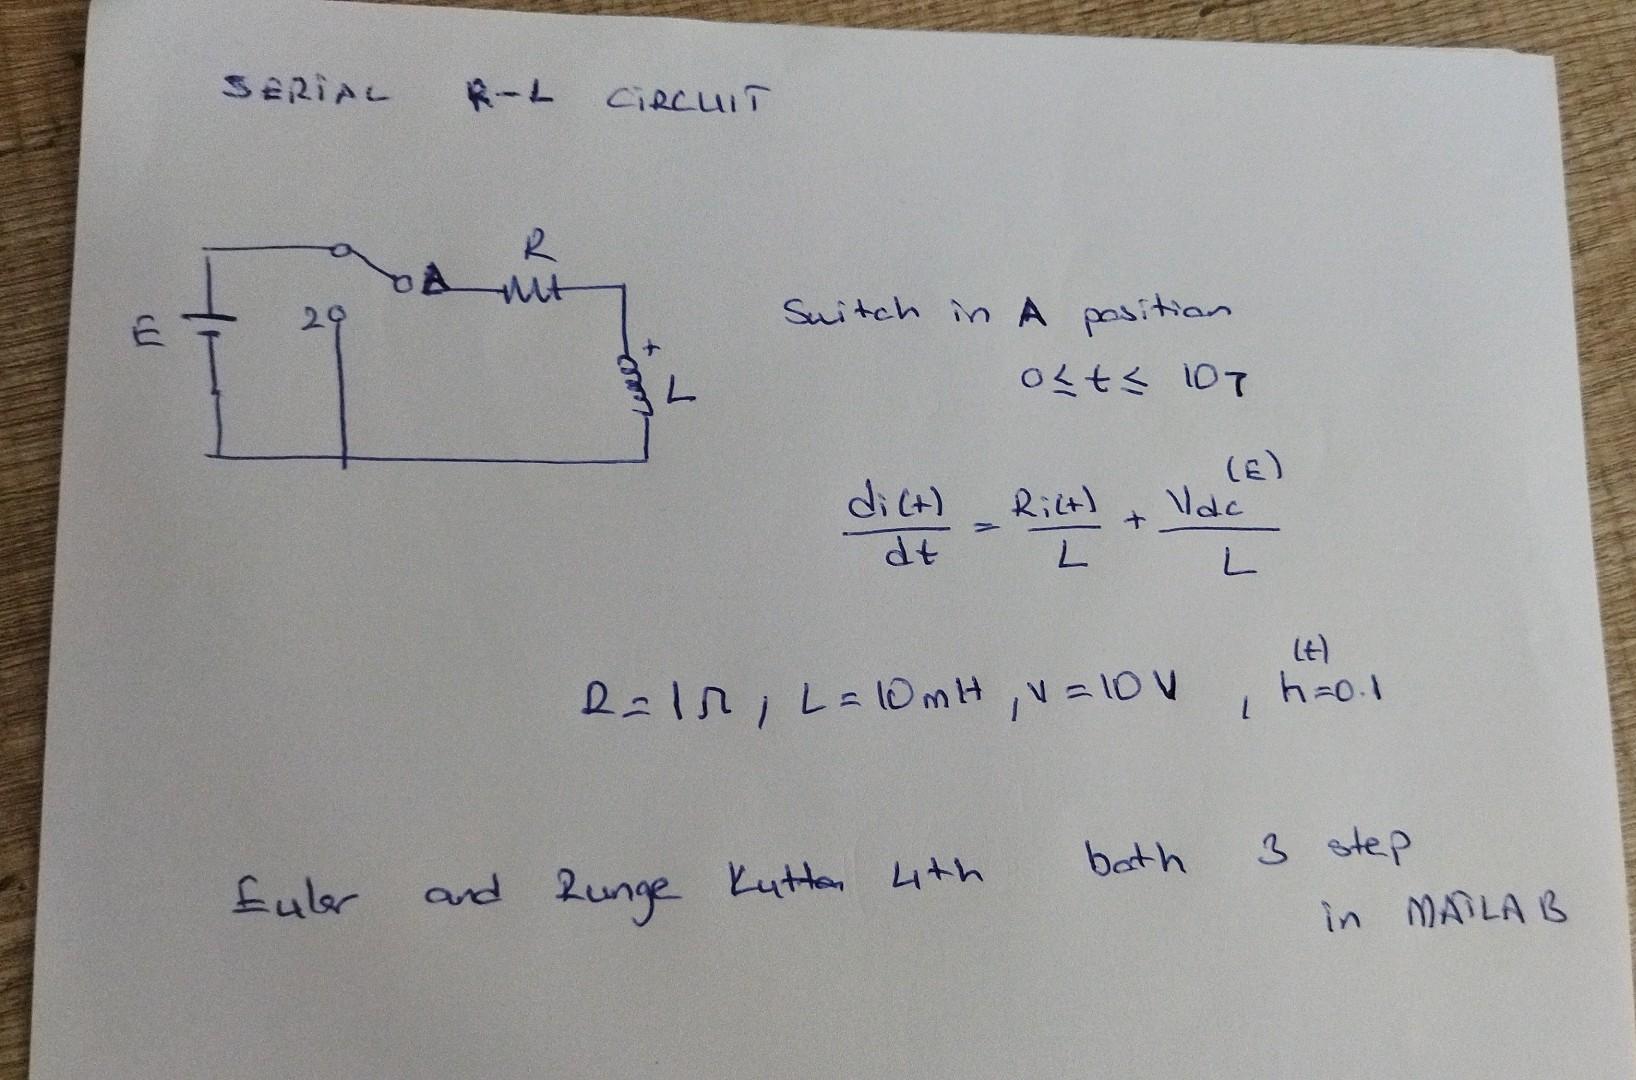 SERİAL R-L CİRCUIT
R
A
E
2
+
L
Switch in A position
0≤t≤ 10τ
di(t)/dt = Ri(t)/L + Vdc(E)/L
(t)
R=1Ω, L=10mH, V=10V, h=0.1
Euler and Runge Kutta 4th both 3 step
in MATLAB